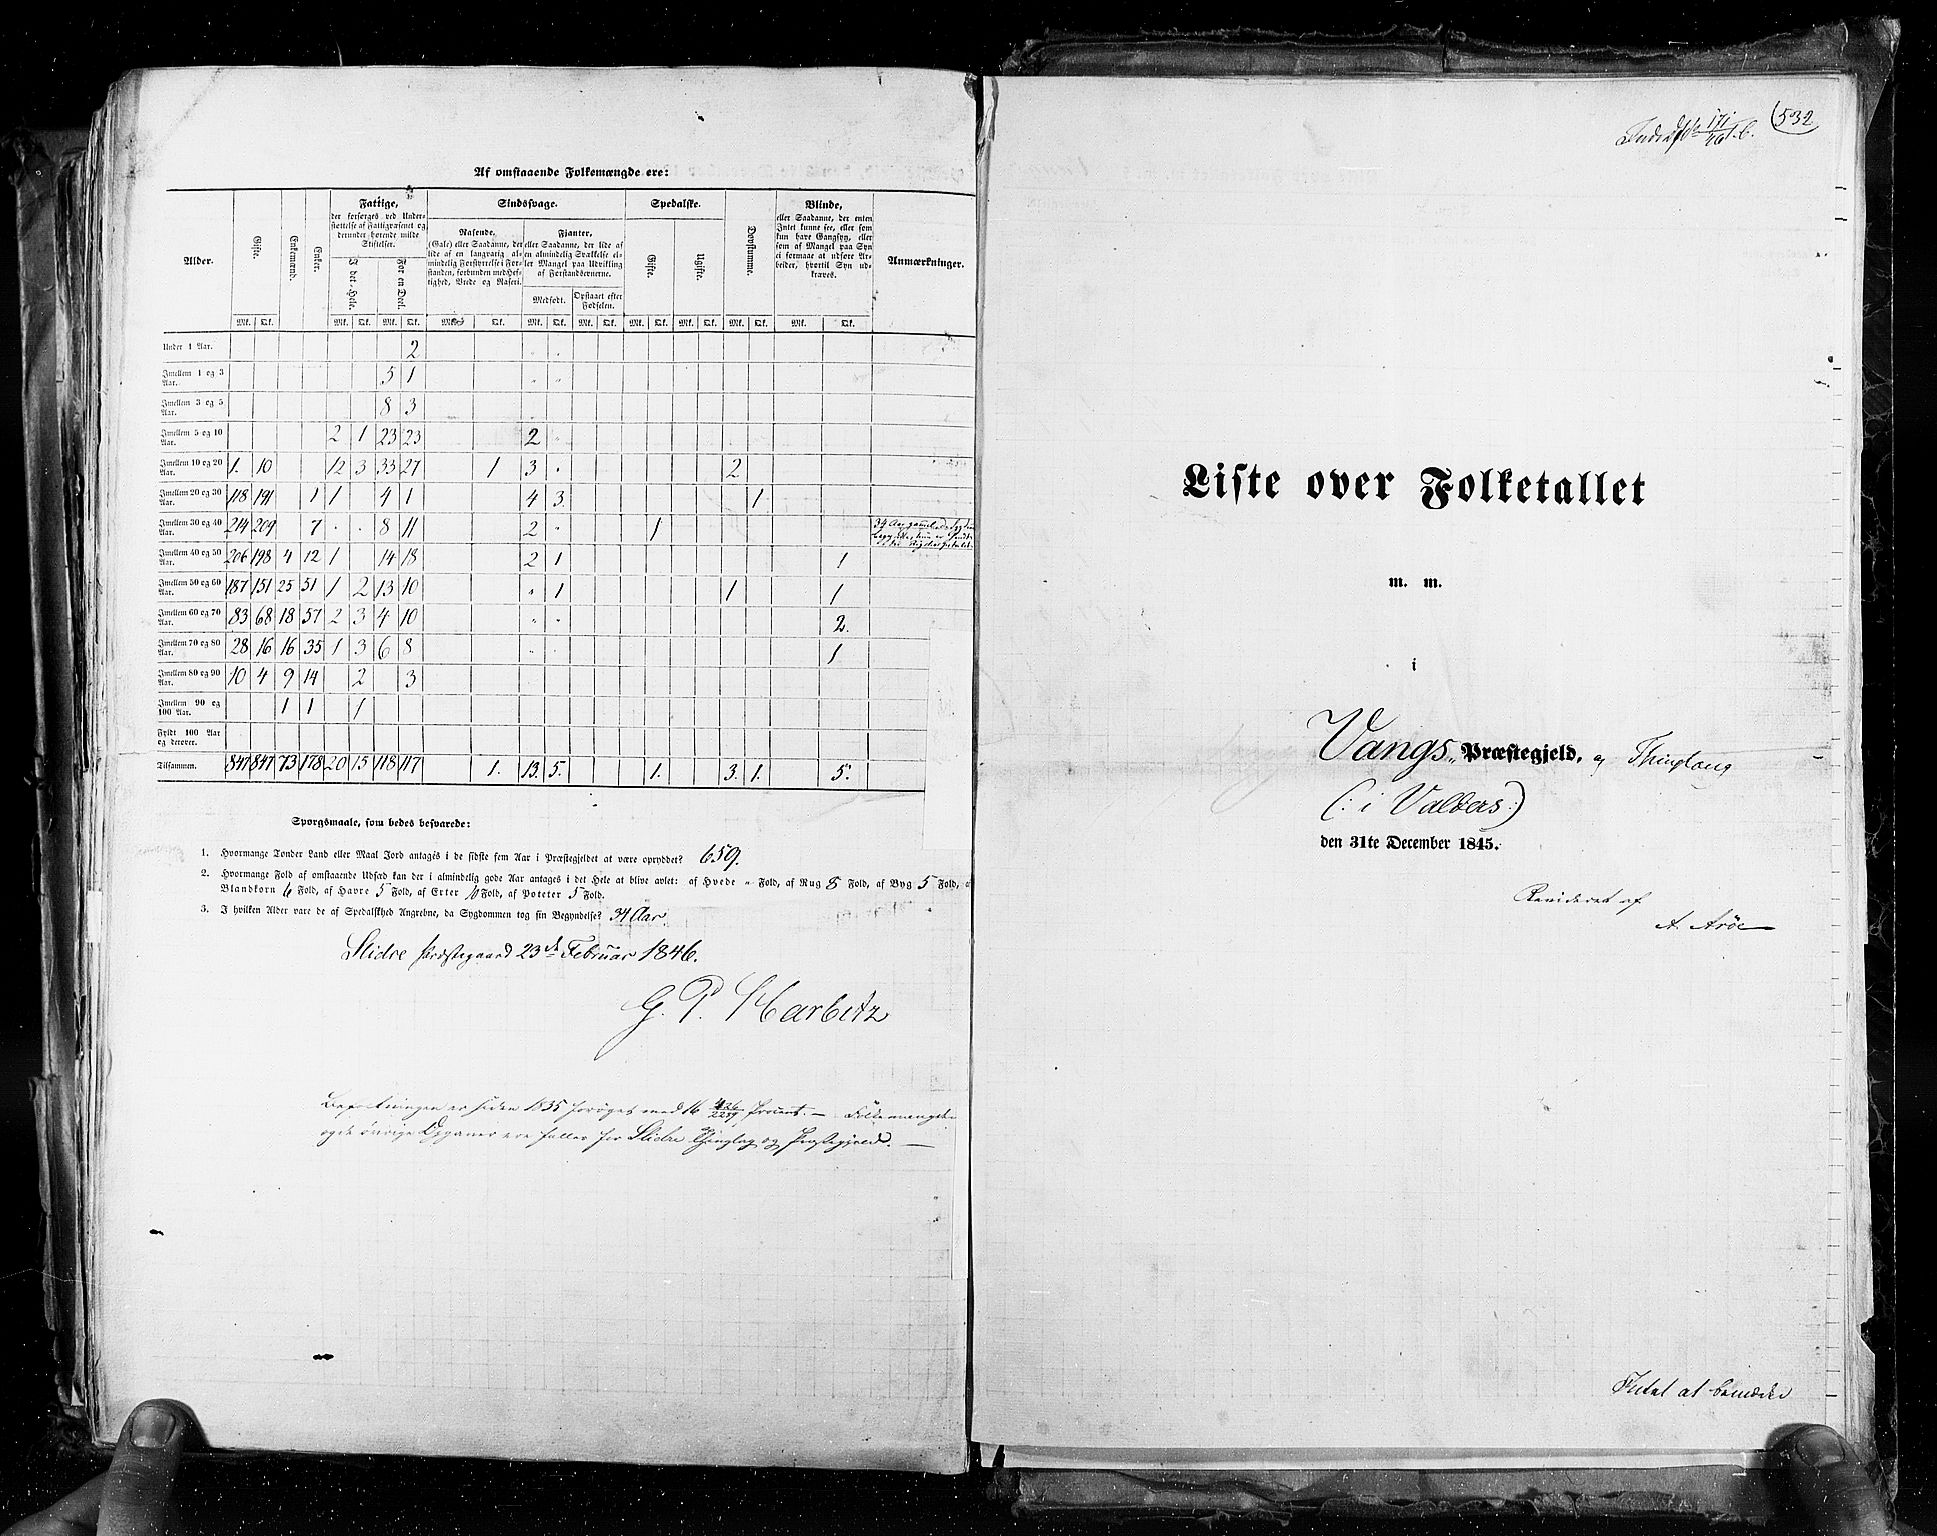 Af omstaaende Folkemængde ere:
Alder. Gifte. Enkemænd. Enker. Fattige, der forsørges ved Understøttelse af Fattigvæsenet og derunder hørende milde Stiftelser. Sindssvage. Spedalske. Døvstumme. Blinde, eller Saadanne, der enten Intet kunne see, eller som kun have Gangsyn, eller som af Mangel paa Syn ei formaae at udføre Arbeider, hvortil Syn udkræves. Anmærkninger.
I det Hele. For en Deel. Rasende, (Gale) eller Saadanne, der lide af en langvarig almindelig Forstyrrelse i Forstanden, forbunden med Heftighed, Vrede og Raseri. Fjanter, eller Saadanne, der lide af en almindelig Svækkelse eller Mangel paa Udvikling af Forstandsevnerne. Gifte. Ugifte.
Medfødt. Opstaaet efter Fødselen.
Mk. Qk. Mk. Qk. Mk. Qk. Mk. Qk. Mk. Qk. Mk. Qk. Mk. Qk. Mk. Qk. Mk. Qk. Mk. Qk.
Under 1 Aar. 2 " "
Imellem 1 og 3 Aar. 5 1 " "
Imellem 3 og 5 Aar. 8 3
Imellem 5 og 10 Aar. 2 1 23 23 2 "
Imellem 10 og 20 Aar. 1. 10 12 3 33 27 1 3 " 2
Imellem 20 og 30 Aar. 118 191 1 1 4 1 4 3. 1
Imellem 30 og 40 Aar. 214 209 7 " " 8 11 2 " 1 34 Aar gammel da Sygdom
Imellem 40 og 50 Aar. 206 198 4 12 1 14 18 2 1 1
Imellem 50 og 60 Aar. 187 151 25 51 1 2 13 10 " 1 1 1
Imellem 60 og 70 Aar. 83 68 18 57 2 3 4 10 " " 2.
Imellem 70 og 80 Aar. 28 16 16 35 1 3 6 8 " " 1
Imellem 80 og 90 Aar. 10 4 9 14 2 3
Imellem 90 og 100 Aar. 1 1 1
Fyldt 100 Aar og derover.
Tilsammen. 847 847 73 178 20 15 118 117 1. 13. 5. 1. 3. 1. 5.
Spørgsmaale, som bedes besvarede:
1. Hvormange Tønder Land eller Maal Jord antages i de sidste fem Aar i Præstegjeldet at være opryddet? 659.
2. Hvormange Fold af omstaaende Udsæd kan der i almindelig gode Aar antages i det Hele at blive avlet: af Hvede " Fold, af Rug 8 Fold, af Byg 5 Fold, af
Blandkorn 6 Fold, af Havre 5 Fold, af Erter 10 Fold, af Poteter 5 Fold.
3. I hvilken Alder vare de af Spedalskhed Angrebne, da Sygdommen tog sin Begyndelse? 34 Aar.
Slidre Præstegaard 23de Februar 1846.
G. P. Harbitz
Befolkningen er siden 1835 forøget med 16 426/2279 Procent. — Folkemængden
og de øvrige Opgaver ere fælles for Slidre Thinglag og Præstegjeld. —
532
Liste over Folketallet
m. m.
i
Vangs Præstegjeld, og Thinglaug
(: i Valders :)
den 31te December 1845.
Revideret af
A. Arøe
Intet at bemærke